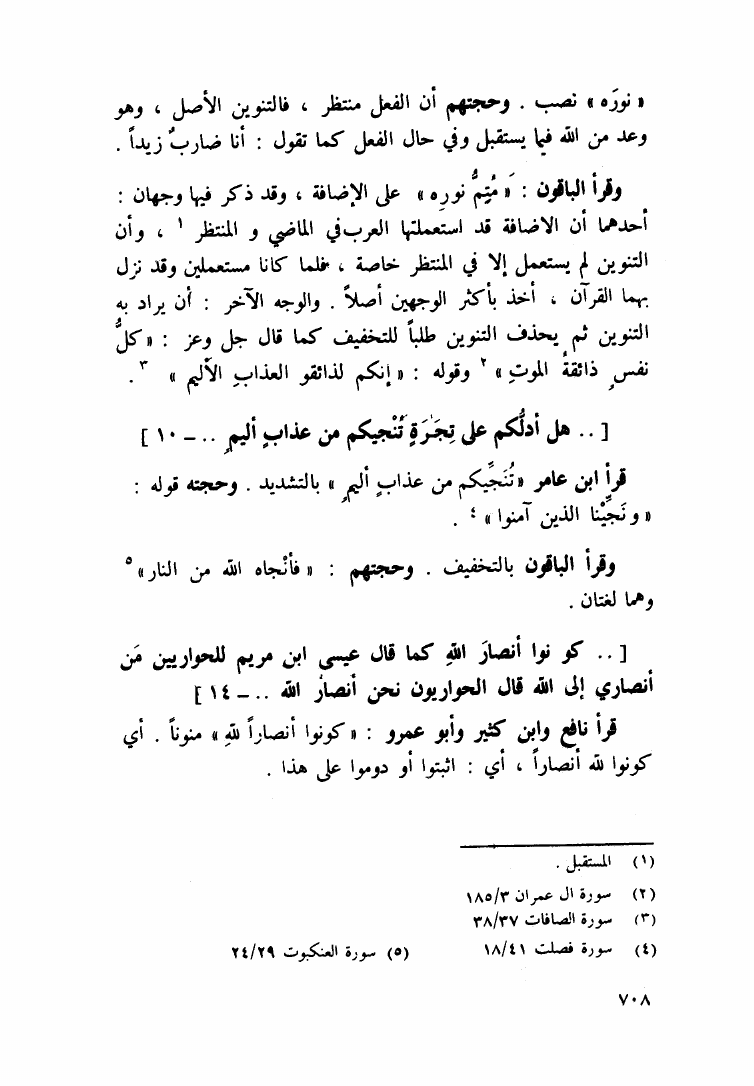 « نورَه » نصب . وحجتهم أن الفعل منتظر ، فالتنوين الأصل ، وهو
وعد من الله فيما يستقبل وفي حال الفعل كما تقول : أنا ضاربٌ زيداً .
وقرأ الباقون : « مُتِمُّ نورِه » على الإضافة ، وقد ذكر فيها وجهان :
أحدهما أن الاضافة قد استعملتها العرب في الماضي و المنتظر ١ ، وأن
التنوين لم يستعمل إلا في المنتظر خاصة ، فلما كانا مستعملين وقد نزل
بهما القرآن ، أخذ بأكثر الوجهين أصلاً . والوجه الآخر : أن يراد به
التنوين ثم يحذف التنوين طلباً للتخفيف كما قال جل وعز : « كلُّ
نفسٍ ذائقةُ الموتِ » ٢ وقوله : « إنكم لذائقو العذابِ الأليم » ٣ .
[ .. هل أدلُّكم على تِجَٰرَةٍ تُنْجيكم من عذابٍ أليمٍ .. – ١٠ ]
قرأ ابن عامر « تُنَجِّيكم من عذابٍ أليمٍ » بالتشديد . وحجته قوله :
« ونَجَّيْنا الذين آمنوا » ٤ .
وقرأ الباقون بالتخفيف . وحجتهم : « فأنْجاه الله من النار » ٥
وهما لغتان .
[ .. كو نوا أنصارَ اللهِ كما قال عيسى ابن مريم للحواريين مَن
أنصاري إلى الله قال الحواريون نحن أنصارُ الله .. – ١٤ ]
قرأ نافع وابن كثير وأبو عمرو : « كونوا أنصاراً للهِ » منوناً . أي
كونوا لله أنصاراً ، أي : اثبتوا أو دوموا على هذا .
(١) المستقبل .
(٢) سورة ال عمران ١٨٥/٣
(٣) سورة الصافات ٣٨/٣٧
(٤) سورة فصلت ١٨/٤١ (٥) سورة العنكبوت ٢٤/٢٩
٧٠٨